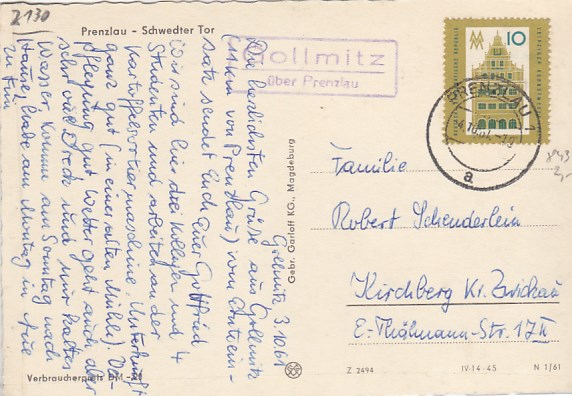 2130
Prenzlau - Schwedter Tor
Gollmitz
über Prenzlau
DEUTSCHE DEMOKRATISCHE REPUBLIK
10
PRENZLAU 1
a
Gollmitz 3.10.61
Die herzlichsten Grüße aus Gollmitz
(11 km von Prenzlau) vom Ernteein-
satz sendet Euch Euer Gottfried
Wir sind hier drei Kollegen und 4
Studenten und arbeiten an der
Kartoffelsortiermaschine. Unterkunft
ganz gut (in einer alten Mühle). Ver-
pflegung gut, Wetter geht auch, aber
sehr viel Dreck und nur kaltes
Wasser. Komme am Sonntag nach
Hause,
am Montag in
zu tun
Gebr. Garloff KG., Magdeburg
Familie
Robert Schenderlein
Kirchberg Kr. Zwickau
E.-Thälmann-Str. 17 II
Verbraucherpreis DM -,20
Z 2494
IV-14-45
N 1/61